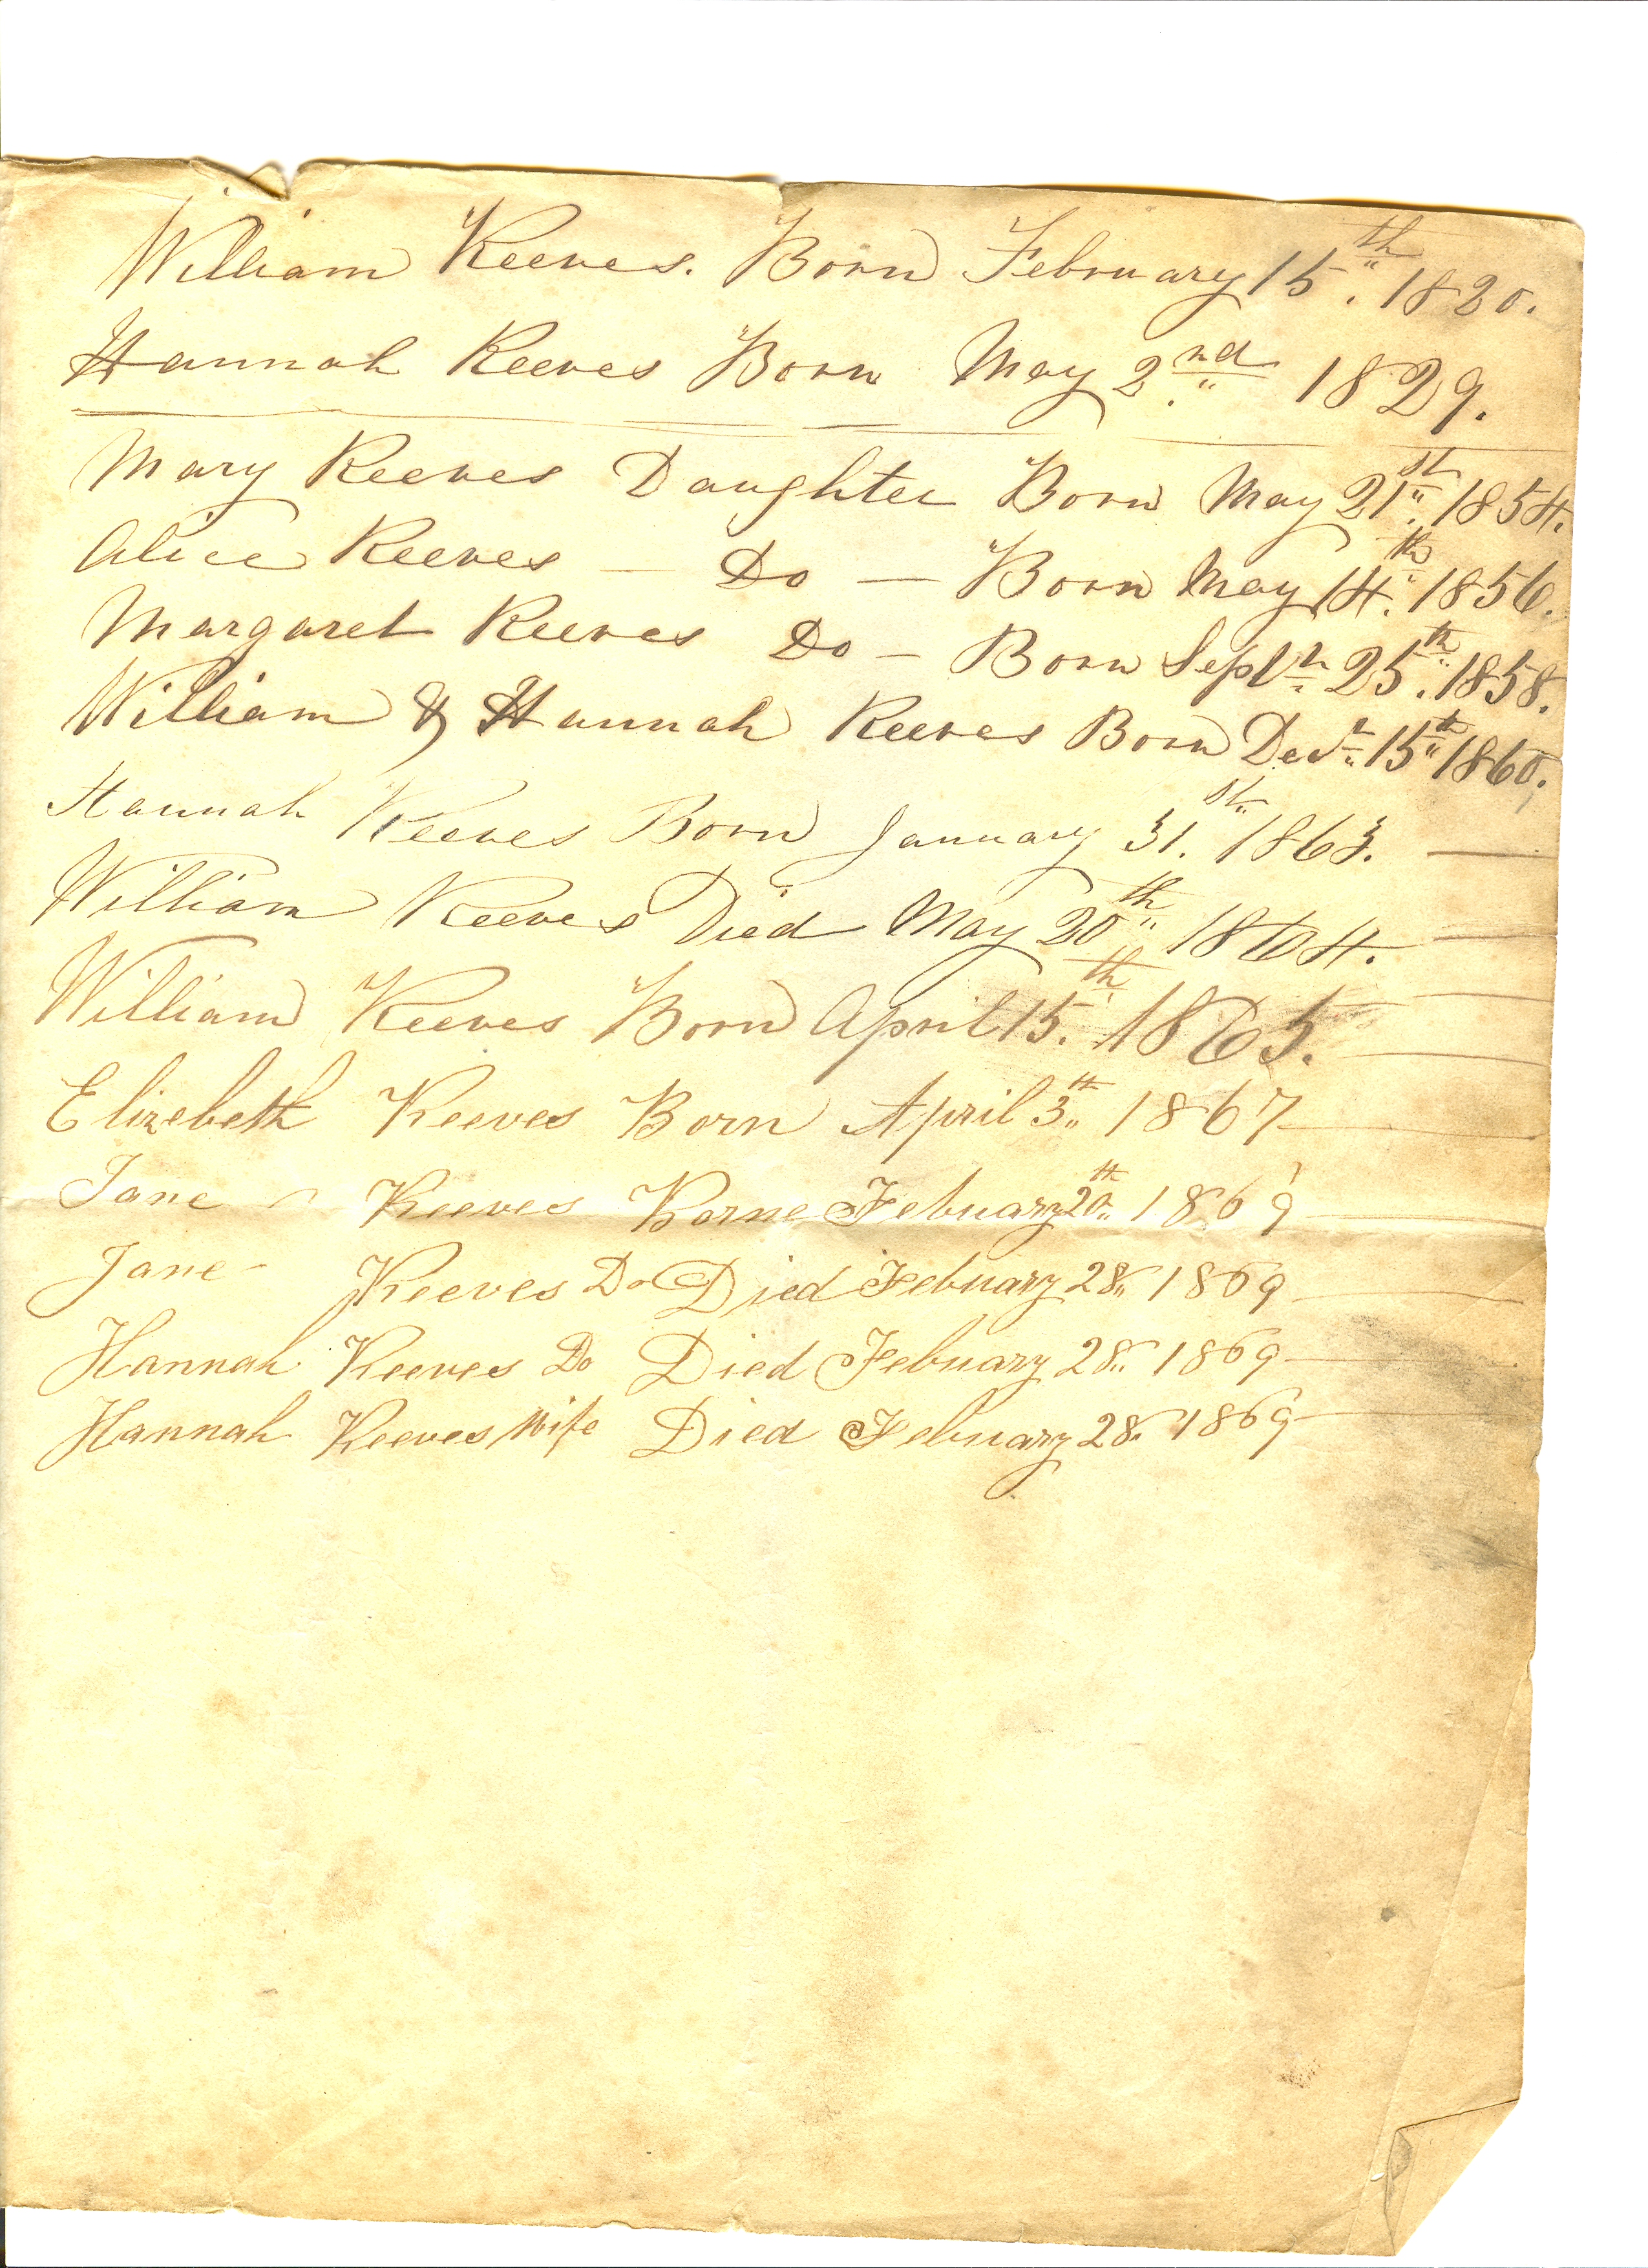 William Reeves. Born February 15th. 1820.
Hannah Reeves Born May 2nd. 1829.
Mary Reeves Daughter Born May 21st. 1854.
Alice Reeves — Do — Born May 14th. 1856.
Margaret Reeves Do — Born Septr. 25th. 1858.
William & Hannah Reeves Born Decr. 15th 1860.
Hannah Reeves Born January 31st. 1863. —
William Reeves Died May 20th 1864. —
William Reeves Born April 15th. 1865. —
Elizebeth Reeves Born April 3th 1867 —
Jane Reeves Borne Febuary 20th 1869 —
Jane - Reeves Do Died Febuary 28. 1869 —
Hannah Reeves Do Died Febuary 28. 1869 —
Hannah Reeves Wife Died Febuary 28. 1869 —